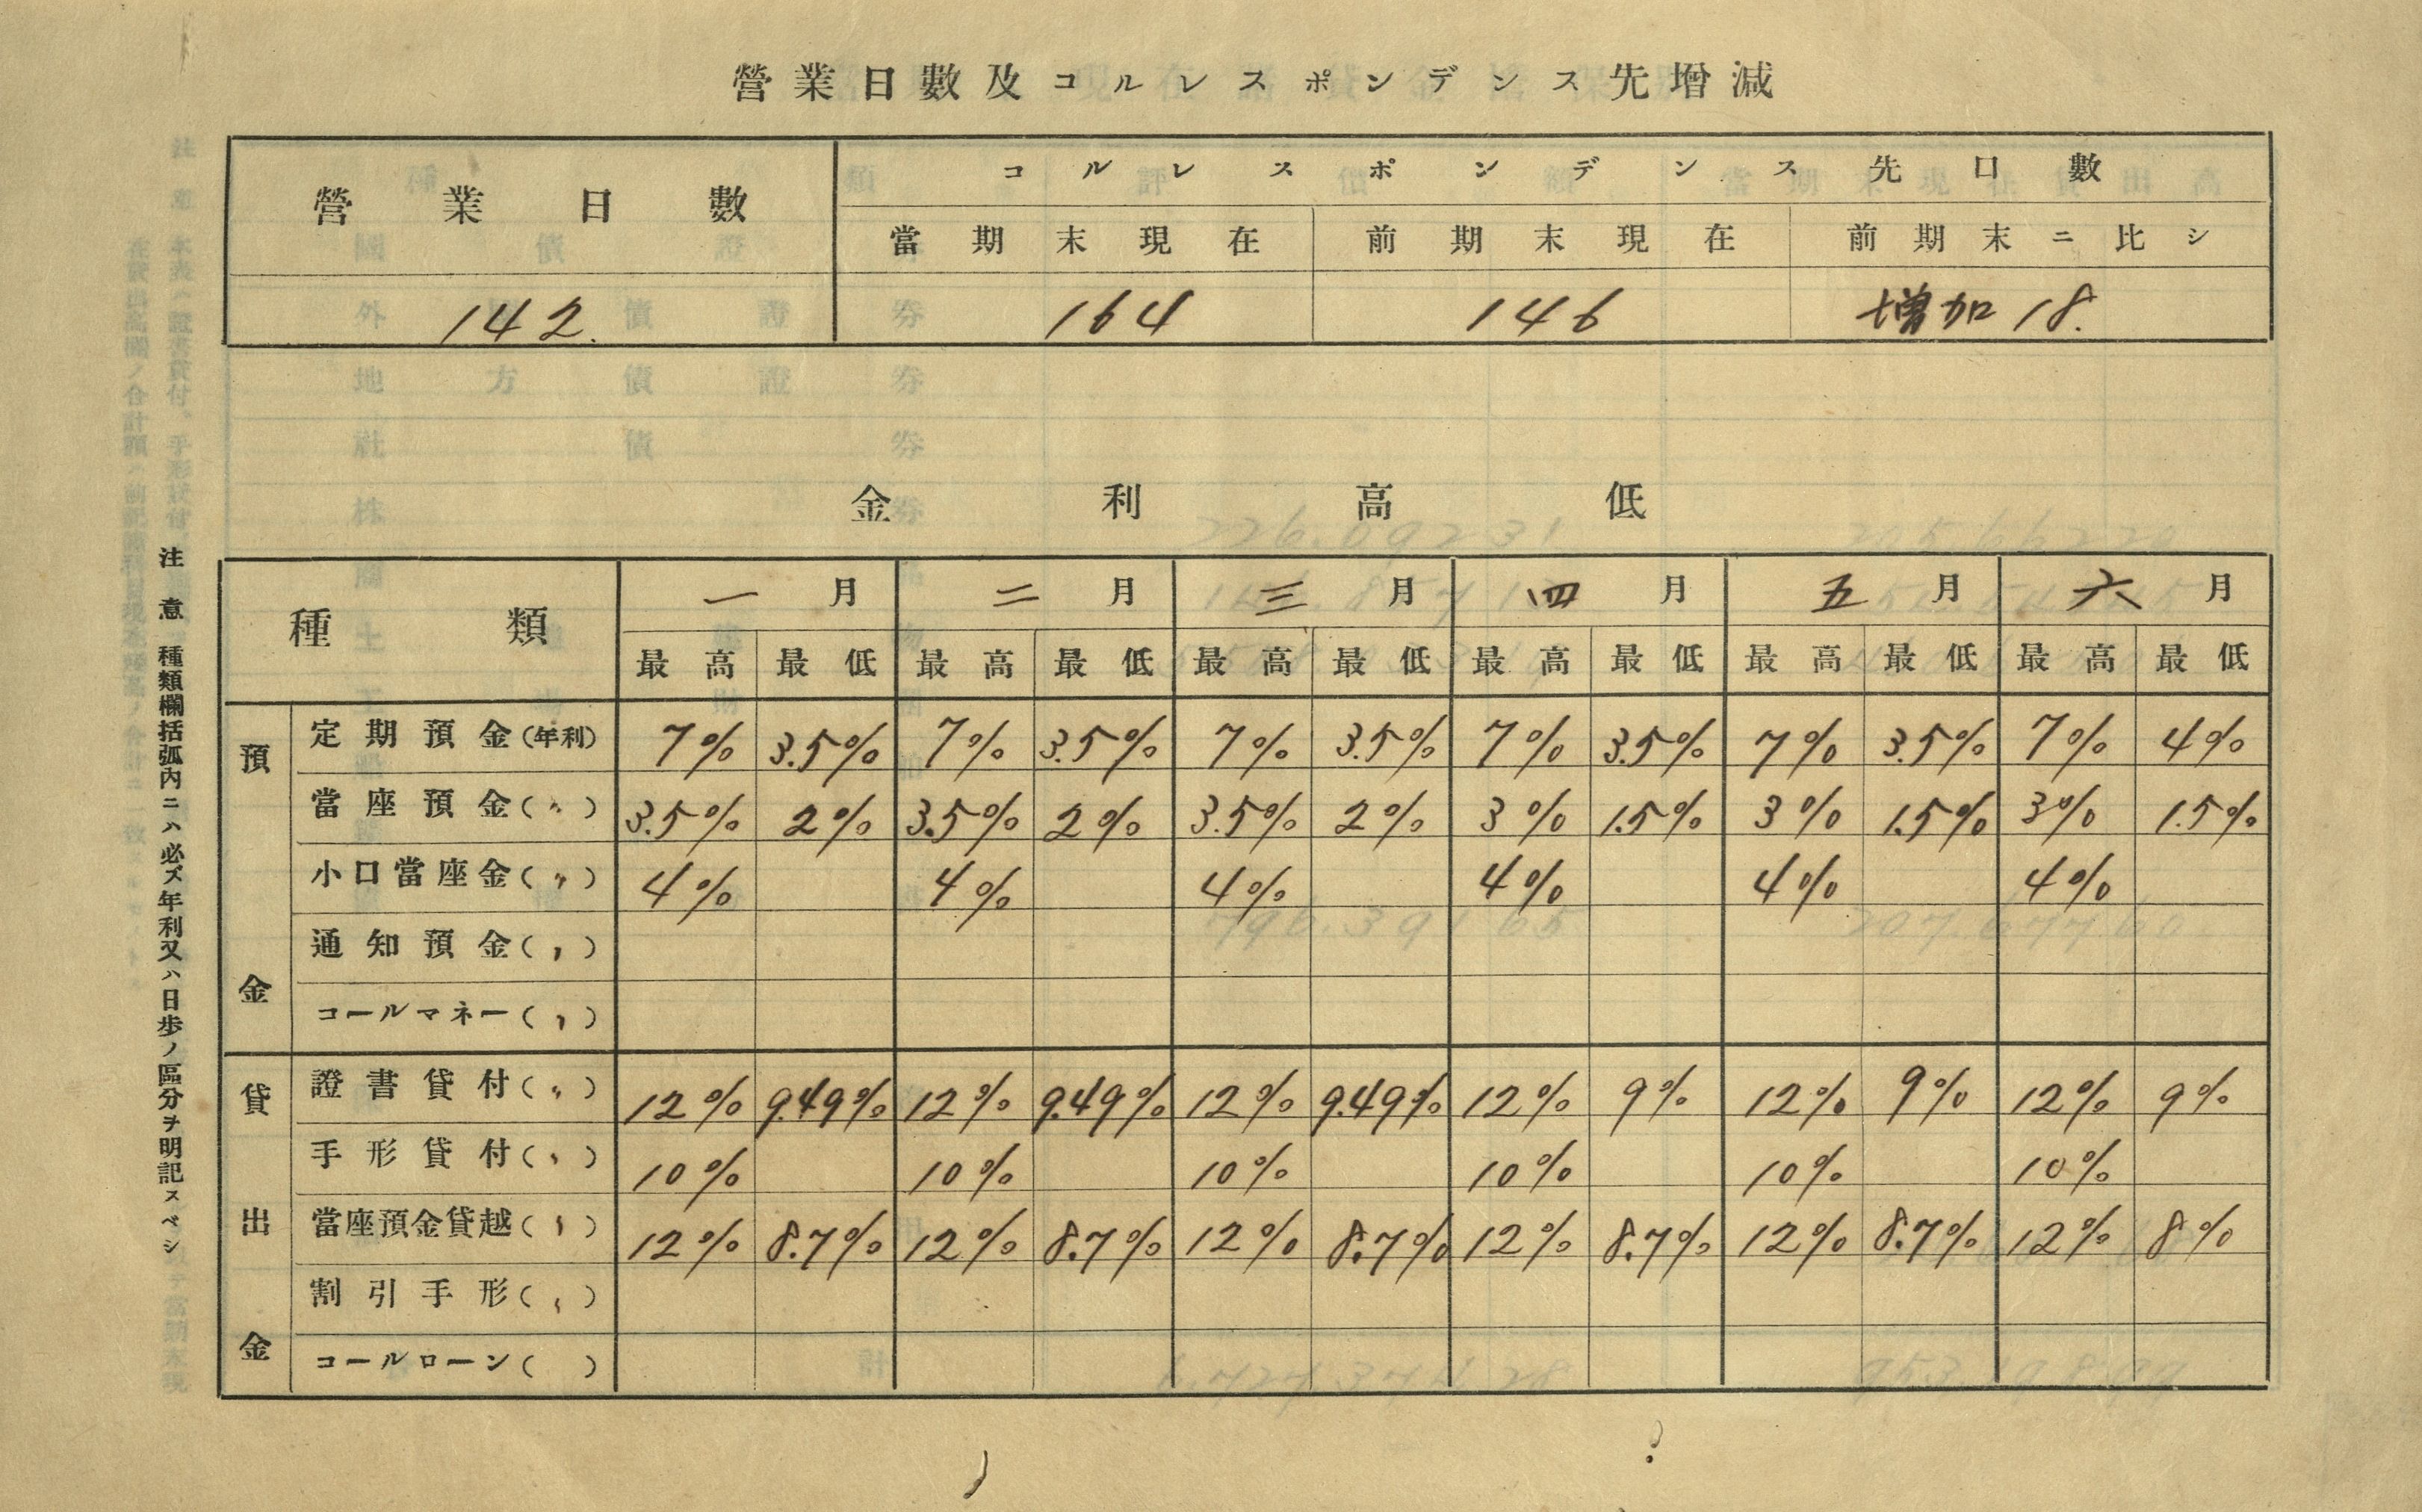 營業日數及コルレスポンデンス先增減
營業日數 コルレスポンデンス先口數
當期末現在 前期末現在 前期末ニ比シ
142. 164 146 増加 18.
金利高低
種類 一月 二月 三月 四月 五月 六月
最高 最低 最高 最低 最高 最低 最高 最低 最高 最低 最高 最低
預金
定期預金(年利) 7% 3.5% 7% 3.5% 7% 3.5% 7% 3.5% 7% 3.5% 7% 4%
當座預金(〃) 3.5% 2% 3.5% 2% 3.5% 2% 3% 1.5% 3% 1.5% 3% 1.5%
小口當座金(〃) 4% 4% 4% 4% 4% 4%
通知預金(〃)
コールマネー(〃)
貸出金
證書貸付(〃) 12% 9.49% 12% 9.49% 12% 9.49% 12% 9% 12% 9% 12% 9%
手形貸付(〃) 10% 10% 10% 10% 10% 10%
當座預金貸越(〃) 12% 8.7% 12% 8.7% 12% 8.7% 12% 8.7% 12% 8.7% 12% 8%
割引手形(〃)
コールローン( )
注意 種類欄括弧內ニハ必ズ年利又ハ日歩ノ區分ヲ明記スベシ